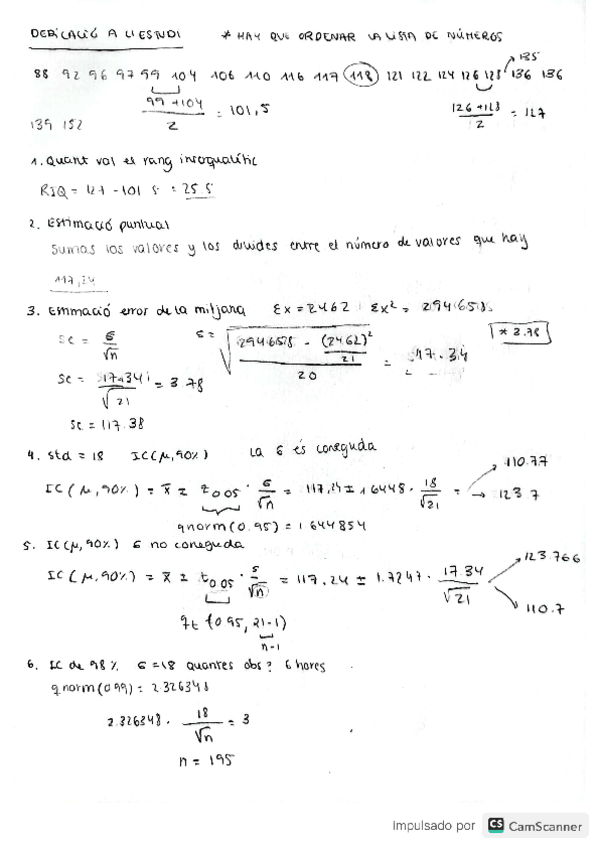 DEDICACIÓ A L'ESTUDI * HAY QUE ORDENAR LA LISTA DE NÚMEROS
135
88 92 96 97 99 104 106 110 116 117 118 121 122 124 126 128 136 136
99 + 104 / 2 = 101,5 126 + 128 / 2 = 127
139 152
1. Quant val el rang interqualític
RIQ = 127 - 101 5 = 25 5
2. Estimació puntual
Sumas los valores y los divides entre el número de valores que hay
117,24
3. Estimació error de la mitjana Ex = 2462 Ex² = 294658
Se = 6 / √n 6 = √ 294658 - (2462)² / 21 / 20 = 17.34 * 3.78
Se = 17.34 / √21 = 3.78
Se = 117.38
4. Std = 18 IC(μ, 90%) La 6 és coneguda
IC(μ, 90%) = x̄ ± z0.05 · 6 / √n = 117,24 ± 1.6448 · 18 / √21 = → 110.77 → 123.7
qnorm(0.95) = 1.644854
5. IC(μ, 90%) 6 no coneguda
IC(μ, 90%) = x̄ ± t0.05 · s / √n = 117.24 ± 1.7247 · 17.34 / √21 → 123.766 → 110.7
qt (0.95, 21-1)
n-1
6. IC de 98% 6 = 18 quantes obs? 6 hores
qnorm(0.99) = 2.326348
2.326348 · 18 / √n = 3
n = 195
Impulsado por CS CamScanner